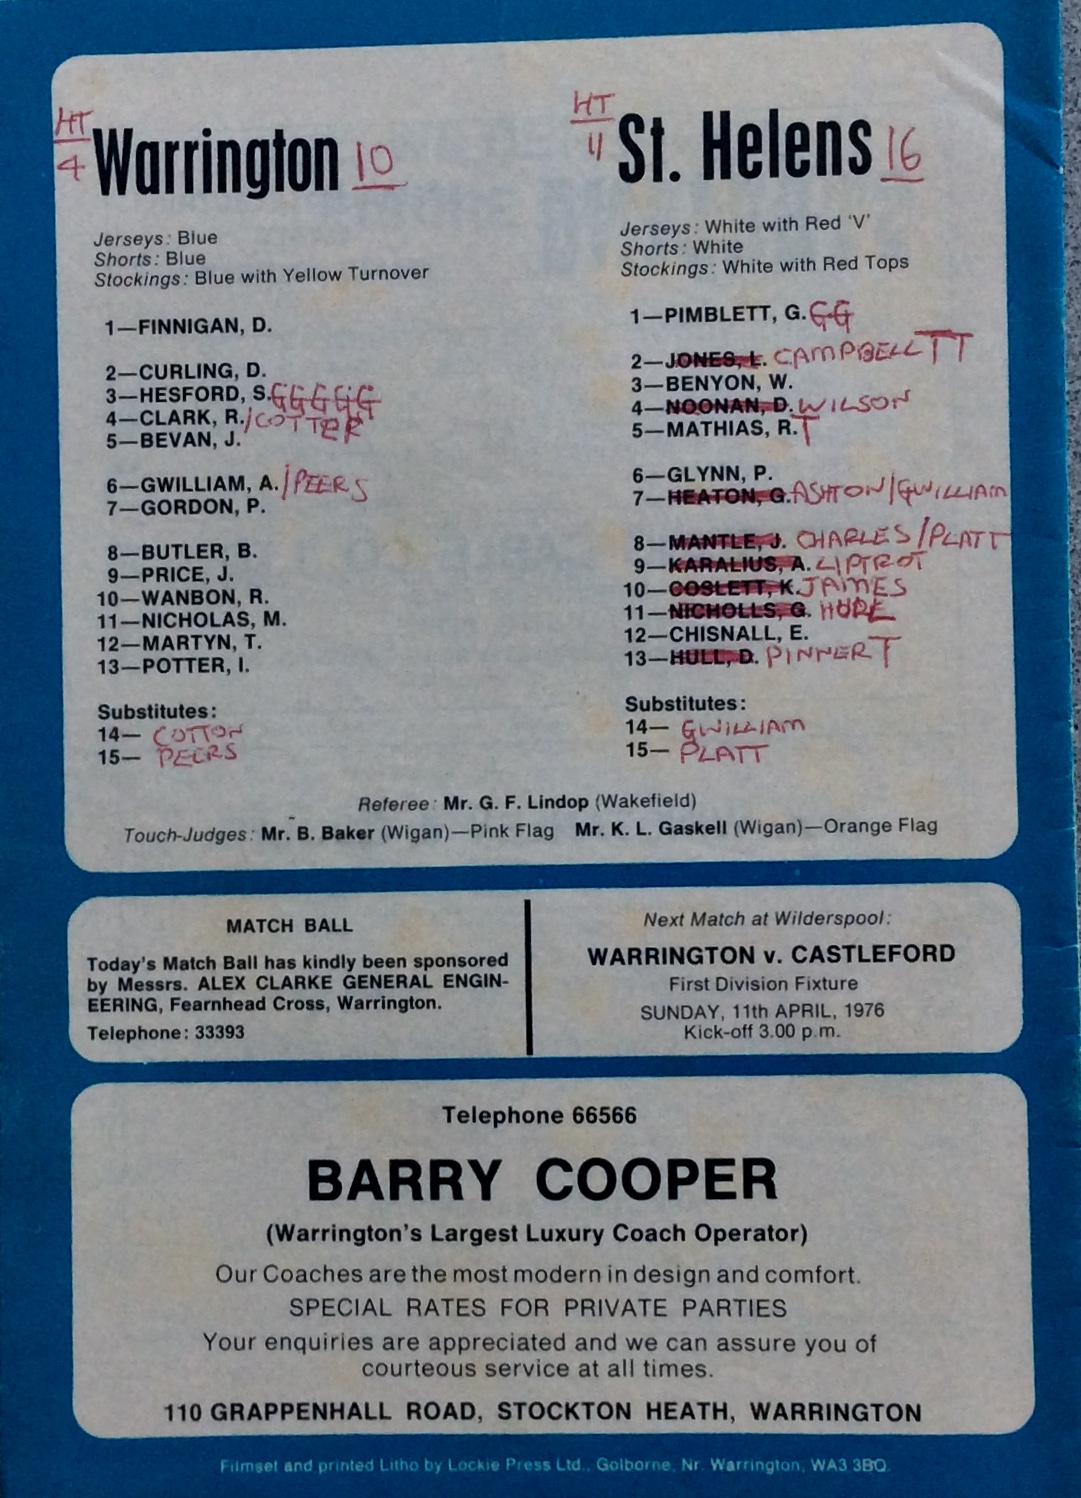 HT
4
Warrington 10
Jerseys: Blue
Shorts: Blue
Stockings: Blue with Yellow Turnover
1—FINNIGAN, D.
2—CURLING, D.
3—HESFORD, S. GGGGG
4—CLARK, R./COTTER
5—BEVAN, J.
6—GWILLIAM, A./PEERS
7—GORDON, P.
8—BUTLER, B.
9—PRICE, J.
10—WANBON, R.
11—NICHOLAS, M.
12—MARTYN, T.
13—POTTER, I.
Substitutes:
14— COTTON
15— PEERS
HT
11
St. Helens 16
Jerseys: White with Red 'V'
Shorts: White
Stockings: White with Red Tops
1—PIMBLETT, G. GG
2—JONES, L. CAMPBELL TT
3—BENYON, W.
4—NOONAN, D. WILSON
5—MATHIAS, R. T
6—GLYNN, P.
7—HEATON, G. ASHTON/GWILLIAM
8—MANTLE, J. CHARLES/PLATT
9—KARALIUS, A. LIPTROT
10—COSLETT, K. JAMES
11—NICHOLLS, G. HOPE
12—CHISNALL, E.
13—HULL, D. PINNER T
Substitutes:
14— GWILLIAM
15— PLATT
Referee: Mr. G. F. Lindop (Wakefield)
Touch-Judges: Mr. B. Baker (Wigan)—Pink Flag Mr. K. L. Gaskell (Wigan)—Orange Flag
MATCH BALL
Today's Match Ball has kindly been sponsored
by Messrs. ALEX CLARKE GENERAL ENGIN-
EERING, Fearnhead Cross, Warrington.
Telephone: 33393
Next Match at Wilderspool:
WARRINGTON v. CASTLEFORD
First Division Fixture
SUNDAY, 11th APRIL, 1976
Kick-off 3.00 p.m.
Telephone 66566
BARRY COOPER
(Warrington's Largest Luxury Coach Operator)
Our Coaches are the most modern in design and comfort.
SPECIAL RATES FOR PRIVATE PARTIES
Your enquiries are appreciated and we can assure you of
courteous service at all times.
110 GRAPPENHALL ROAD, STOCKTON HEATH, WARRINGTON
Filmset and printed Litho by Lockie Press Ltd., Golborne, Nr. Warrington, WA3 3BQ.